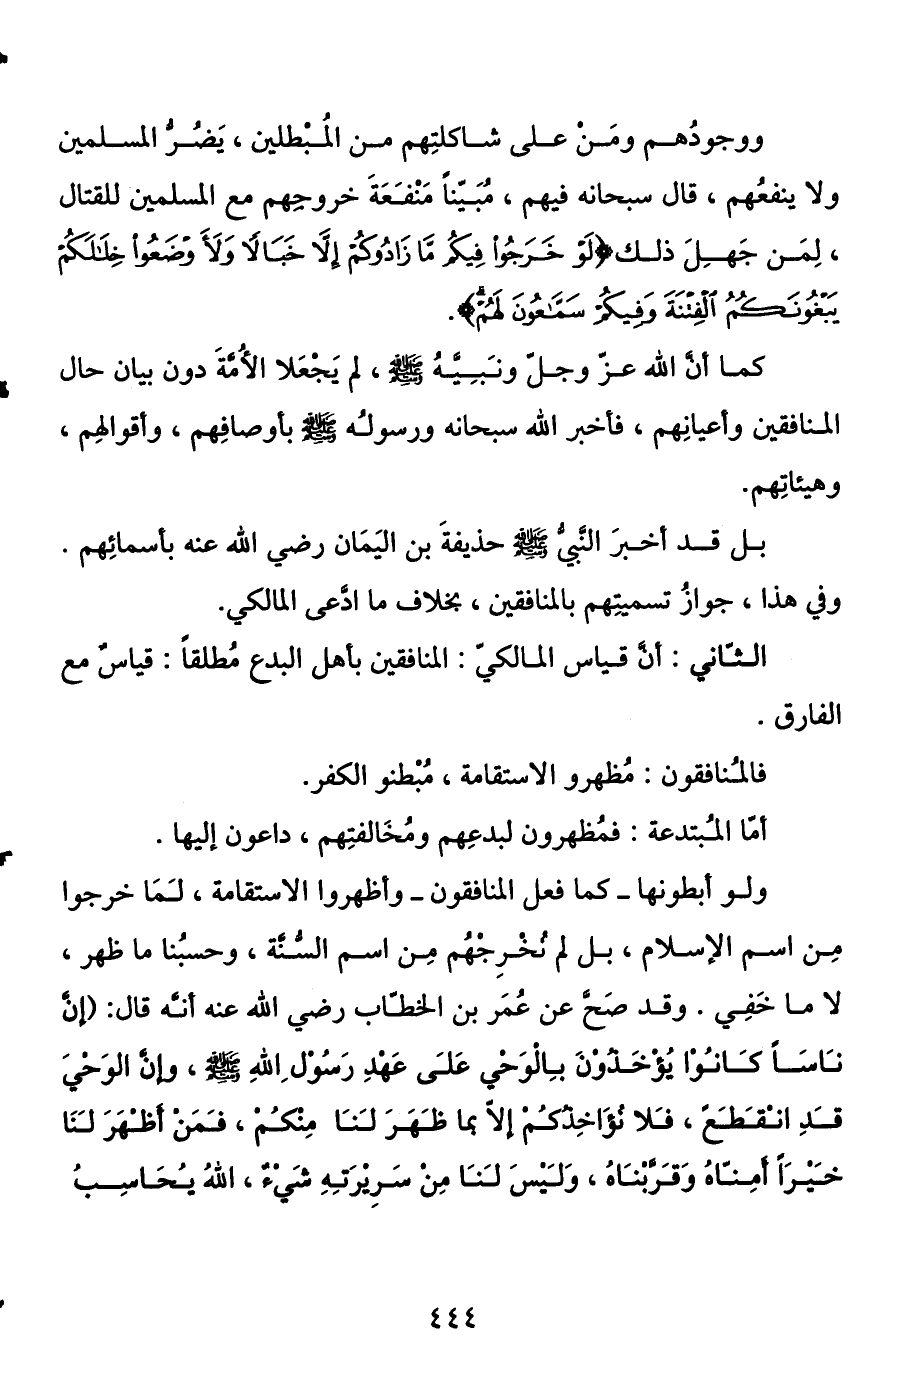 ووجودُهـم ومَـنْ عـلى شـاكلتِهم مـن المُـبْطلين ، يَضـُـرُّ المسـلمين
ولا ينفعُهم ، قال سبحانه فيهم ، مُبَيّناً مَنْفَعَةَ خروجِهم مع المسلمين للقتال
، لِمَـن جَهـِلَ ذلـك ﴿لَوْ خَرَجُوا۟ فِيكُم مَّا زَادُوكُمْ إِلَّا خَبَالًا وَلَأَوْضَعُوا۟ خِلَٰلَكُمْ
يَبْغُونَكُمُ ٱلْفِتْنَةَ وَفِيكُمْ سَمَّٰعُونَ لَهُمْ ۗ﴾.
كمـا أنَّ الله عـزّ وجـلّ ونـَبـِيَّـهُ ﷺ ، لم يَجْعَلا الأُمَّةَ دون بيان حال
المنافقين وأعيانِهم ، فأخبر الله سبحانه ورسولُه ﷺ بأوصافِهم ، وأقوالهِم ،
وهيئاتِهم.
بـل قـد أخـبرَ النَّبيُّ ﷺ حذيفةَ بن اليَمَان رضي الله عنه بأسمائِهم .
وفي هذا ، جوازُ تسميتِهم بالمنافقين ، بخلاف ما ادَّعى المالكي.
الـثـّاني : أنَّ قـياس المـالكيّ : المنافقين بأهل البدع مُطلقاً : قياسٌ مع
الفارق .
فالمُنافقون : مُظهرو الاستقامة ، مُبْطنو الكفر.
أمّا المُبتدعة : فمُظهرون لبدعِهم ومُخَالفتِهم ، داعون إليها .
ولـو أبطونهـا ـ كما فعل المنافقون ـ وأظهروا الاستقامة ، لَـمَا خرجوا
مِـن اسـم الإسـلام ، بـل لم نُخْـرِجْهُم مِـن اسـم السُّنَّة ، وحسبُنا ما ظهر ،
لا مـا خَفِـي . وقـد صَحَّ عن عُمَر بن الخطـّاب رضي الله عنه أنـَّه قال: (إنَّ
نَـاسَــاً كَـانُـوْا يُؤْخَـذُوْنَ بـِالْوَحْي عَلَـى عَهْدِ رَسُوْلِ اللهِ ﷺ ، وإنَّ الوَحْيَ
قَـدِ انْـقـَطَـعَ ، فَـلا نُؤَاخِذُكـُمْ إلاّ بما ظَهَـرَ لَـنَـا مِنْكـُمْ ، فَـمَنْ أَظْهَرَ لَـنَا
خَيْـرَاً أَمِـنـّاهُ وَقَـرَّبْنـَاهُ ، وَلَـيْسَ لَـنَا مِنْ سَـرِيْرَتـِهِ شَيْءٌ ، اللهُ يـُحَـاسِـبُ
٤٤٤